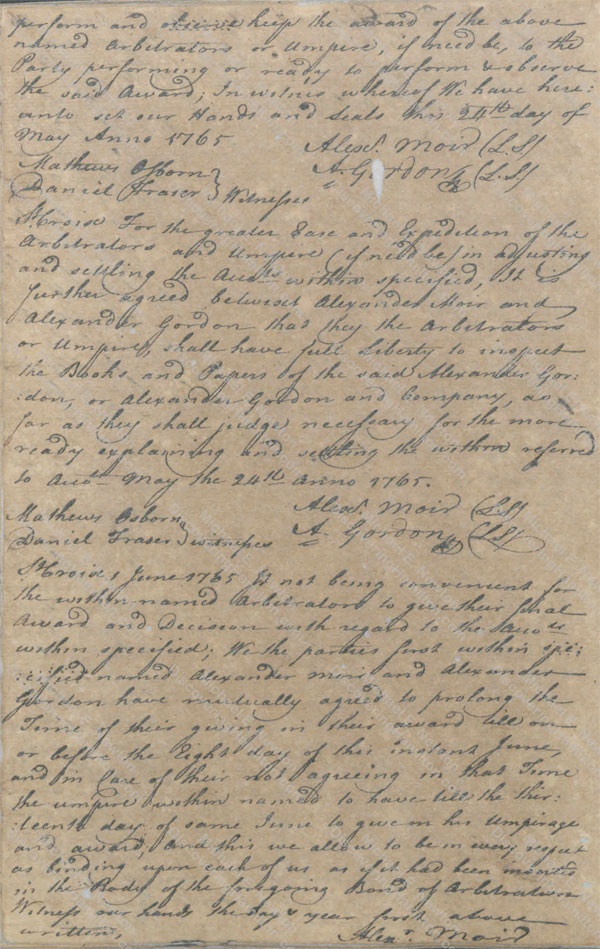 perform and observe keep the award of the above
named Arbitrators or Umpire, if need be, to the
Party performing or ready to perform & observe
the said Award; In witness whereof We have here:
unto set our Hands and Seals this 24th day of
May Anno 1765
Alexr. Moir (L.S)
A. Gordon (L.S)
Mathews Osborn
Daniel Fraser } Witnesses
St Croix For the greater Ease and Expedition of the
Arbitrators and Umpire (if need be) in adjusting
and settling the Accots within specified, It is
further agreed betwixt Alexander Moir and
Alexander Gordon that they the Arbitrators
or Umpire, shall have full Liberty to inspect
the Books and Papers of the said Alexander Gor:
:don, or Alexander Gordon and Company, as
far as they shall judge necessary for the more
ready explaining and settling the within referred
to Accots. May the 24th Anno 1765.
Alexr. Moir (L.S)
A. Gordon (L.S)
Mathews Osborn
Daniel Fraser } witnesses
St Croix 1 June 1765 It not being convenient for
the within named Arbitrators to give their final
Award and Decision with regard to the Accots
within specified; We the parties first within spe:
:cified named Alexander Moir and Alexander
Gordon have mutually agreed to prolong the
Time of their giving in their award till on
or before the Eight day of this instant June,
and in Case of their not agreeing in that Time
the umpire within named to have till the thir:
:teenth day of same June to give in his Umpirage
and award, and this we allow to be in every respect
as binding upon each of us as if it had been inserted
in the Body of the foregoing Bond of Arbitration
Witness our hands the day & year first above
written,
Alexr. Moir